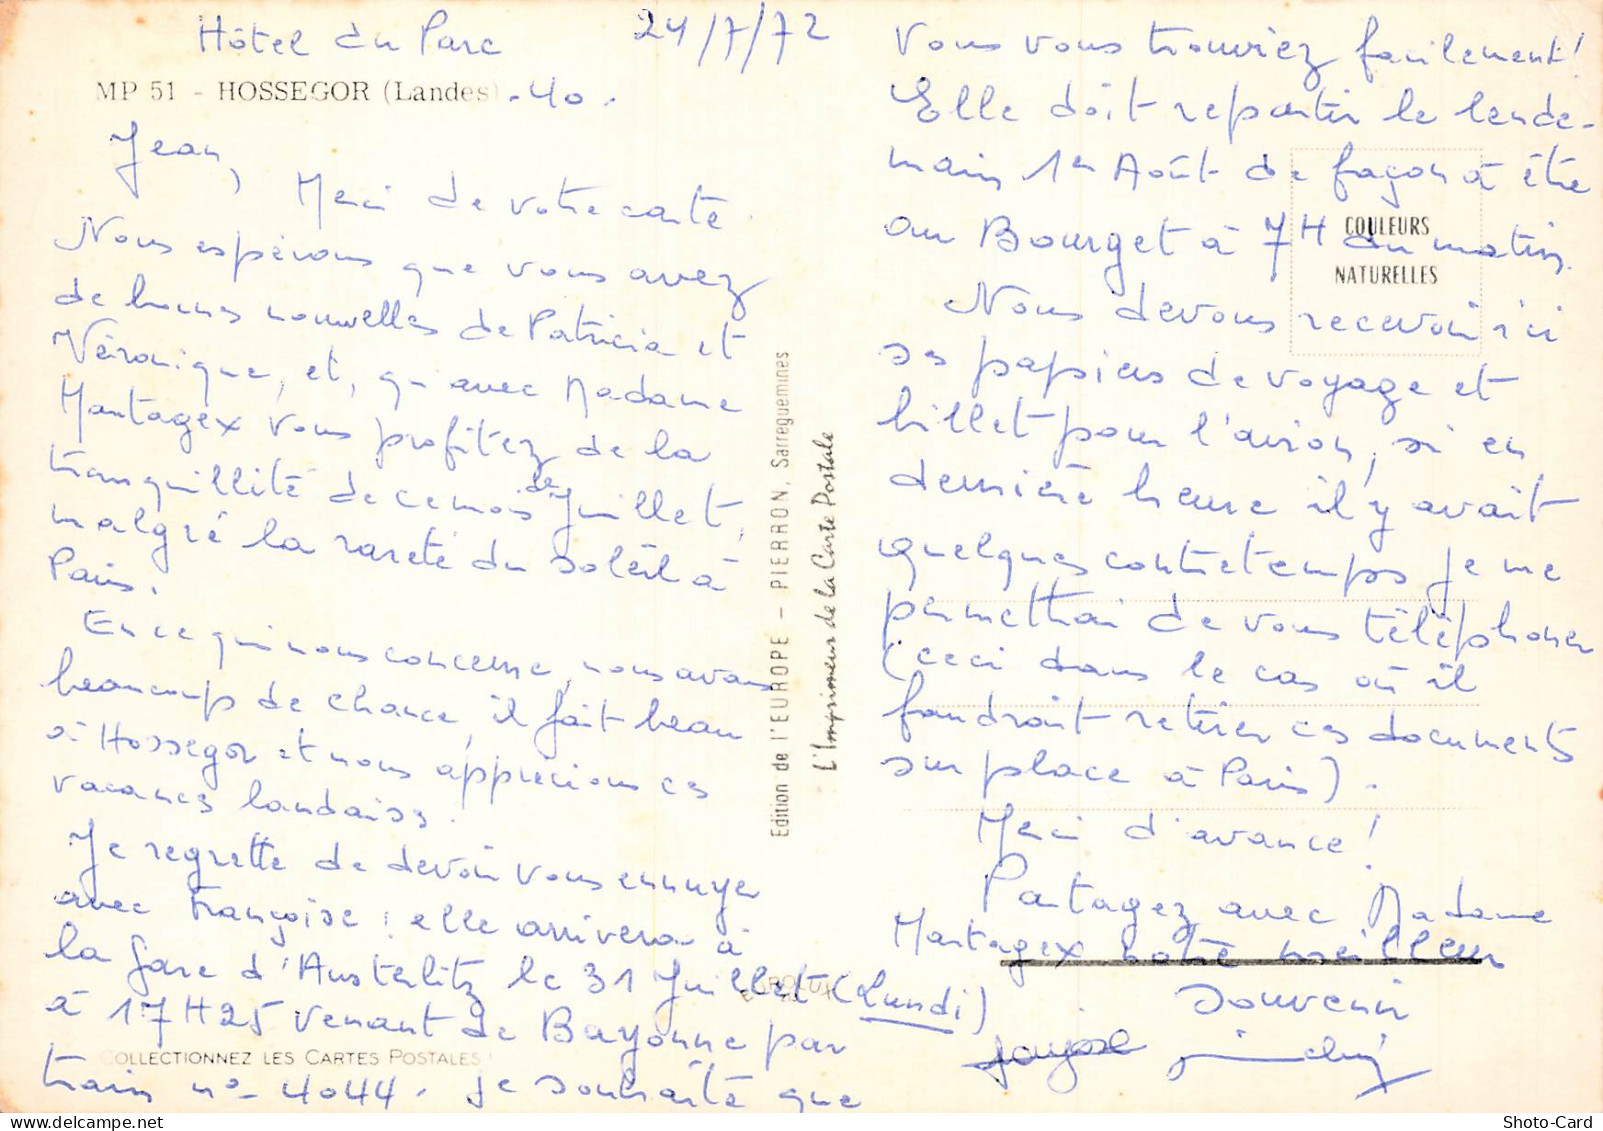 Hôtel du Parc 24/7/72
MP 51 - HOSSEGOR (Landes) - 40 -
Jean,
Merci de votre carte.
Nous espérons que vous avez
de bonnes nouvelles de Patricia et
Véronique, et, qu'avec Madame
Montagex vous profitez de la
tranquillité de ce mois de Juillet,
malgré la rareté du soleil à
Paris.
En ce qui nous concerne, nous avons
beaucoup de chance, il fait beau
à Hossegor et nous apprécions ces
vacances landaises.
Je regrette de devoir vous ennuyer
avec Françoise : elle arrivera à
la gare d'Austerlitz le 31 Juillet (Lundi)
à 17H25 venant de Bayonne par
train n° 4044. Je souhaite que
COLLECTIONNEZ LES CARTES POSTALES
Edition de l'EUROPE - PIERRON, Sarreguemines
L'Imprimeur de la Carte Postale
vous vous trouviez facilement!
Elle doit repartir le lende-
main 1er Août de façon à être
au Bourget à 7H du matin.
COULEURS
NATURELLES
Nous devons recevoir ici
ses papiers de voyage et
billet pour l'avion, si en
dernière heure il y avait
quelques contretemps je me
permettrai de vous téléphoner
(ceci dans le cas où il
faudrait retirer ces documents
sur place à Paris).
Merci d'avance!
Partagez avec Madame
Montagex notre meilleur
souvenir
Shoto-Card